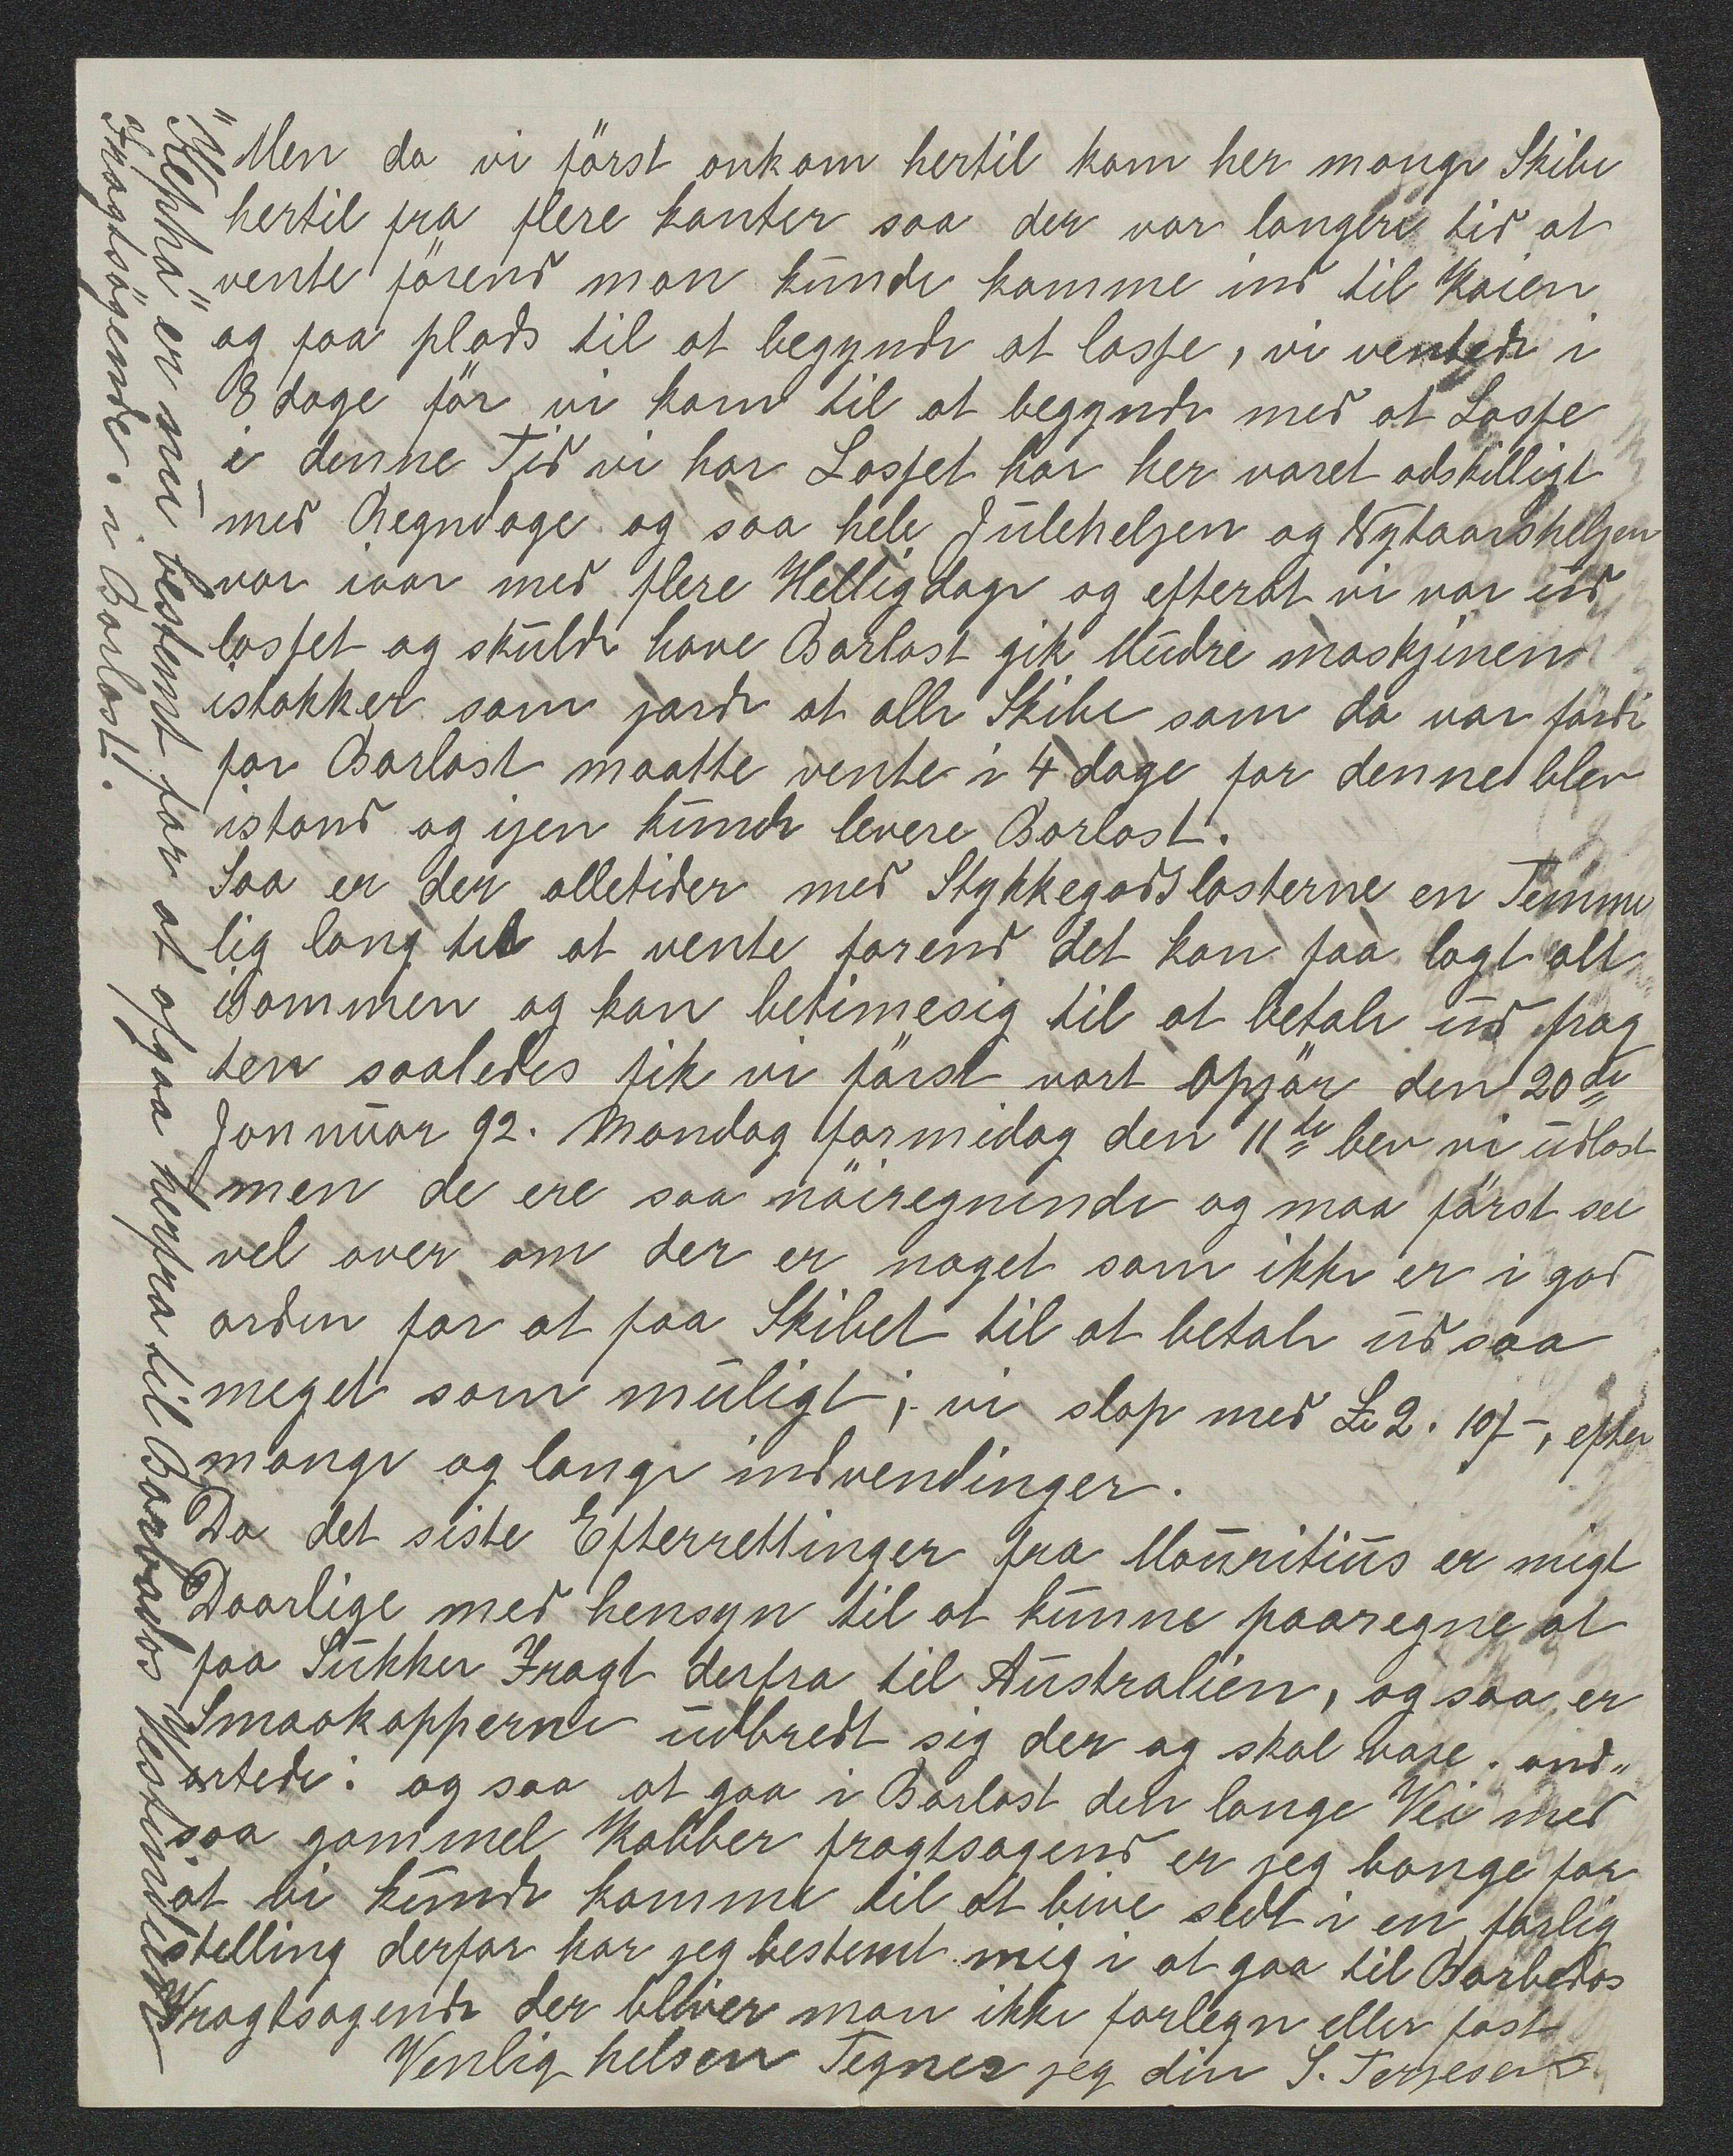 Men da vi först ankom hertil kom her mange Skibe
hertil fra flere kanter saa der var langere tid at
vente förend man kunde komme ind til Kaien
og faa plads til at begynde at losse, vi ventede i
8 dage för vi kom til at begynde med at Losse
i denne Tid vi har Losset har her varet adskilligt
med Regndage og saa hele Julehelgen og Nytaarshelgen
var iaar med flere Helligdage og efterat vi var ud
losset og skulde have Barlast gik Mudre maskjinen
istokker som jorde at alle Skibe som da var fardi
for Barlast maatte vente i 4 dage for denne blev
istand og igen kunde levere Barlast.
Saa er der alletider med Stykkegodslasterne en Temme
lig lang tid at vente forend det kan faa lagt alt
isammen og kan betimesig til at betale ud frag
ten saaledes fik vi först vort Opjör den 20de
Januar 92. Mandag formidag den 11te bev vi udlost
men de ere saa nöiregnende og maa först see
vel over om der er noget som ikke er i god
orden for at faa Skibet til at betale ud saa
meget som muligt; vi slop med £ 2. 10/-, efter
mange og lange indvendinger.
Da det siste Efterrettinger fra Mauritius er migt
Daarlige med hensyn til at kunne paaregne at
faa Sukker Fragt derfra til Australien, og saa er
Smaakopperne udbredt sig der og skal vare ond„
artede: og saa at gaa i Barlast den lange Vei med
saa gammel Kobber fragtsogend er jeg bange for
at vi kunde komme til at bive sedt i en farlig
stelling derfor har jeg bestemt mig i at gaa til Barbedos
Fragtsogende der bliver man ikke forlegn eller fast
Venlig helsen Tegner jeg din S. Terjesen
"Kepha" er nu bestemt for at afgaa herfra til Barbados Vestindien
Fragtsögende i Barlast.